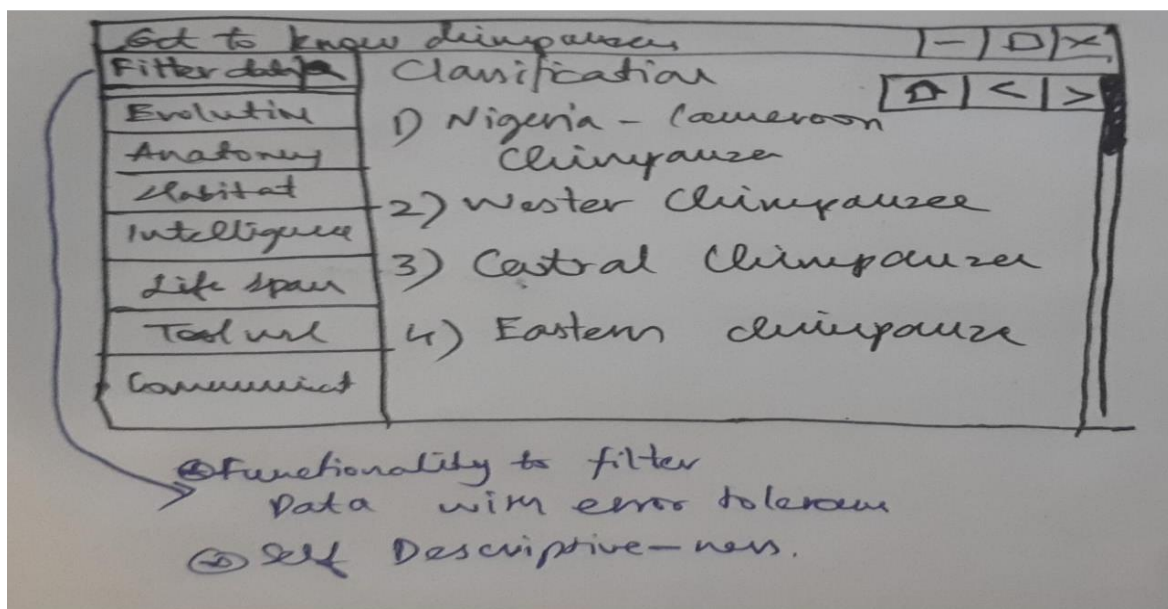 Get to know chimpanzees
Filter data
Classification
Evolution
Anatomy
Habitat
Intelligence
Life span
Tool use
Communicat
1) Nigeria - Cameroon
Chimpanzee
2) Wester Chimpanzee
3) Central Chimpanzee
4) Eastern chimpanze
① Functionality to filter
Data with error tolerance
② Self Descriptive-ness.